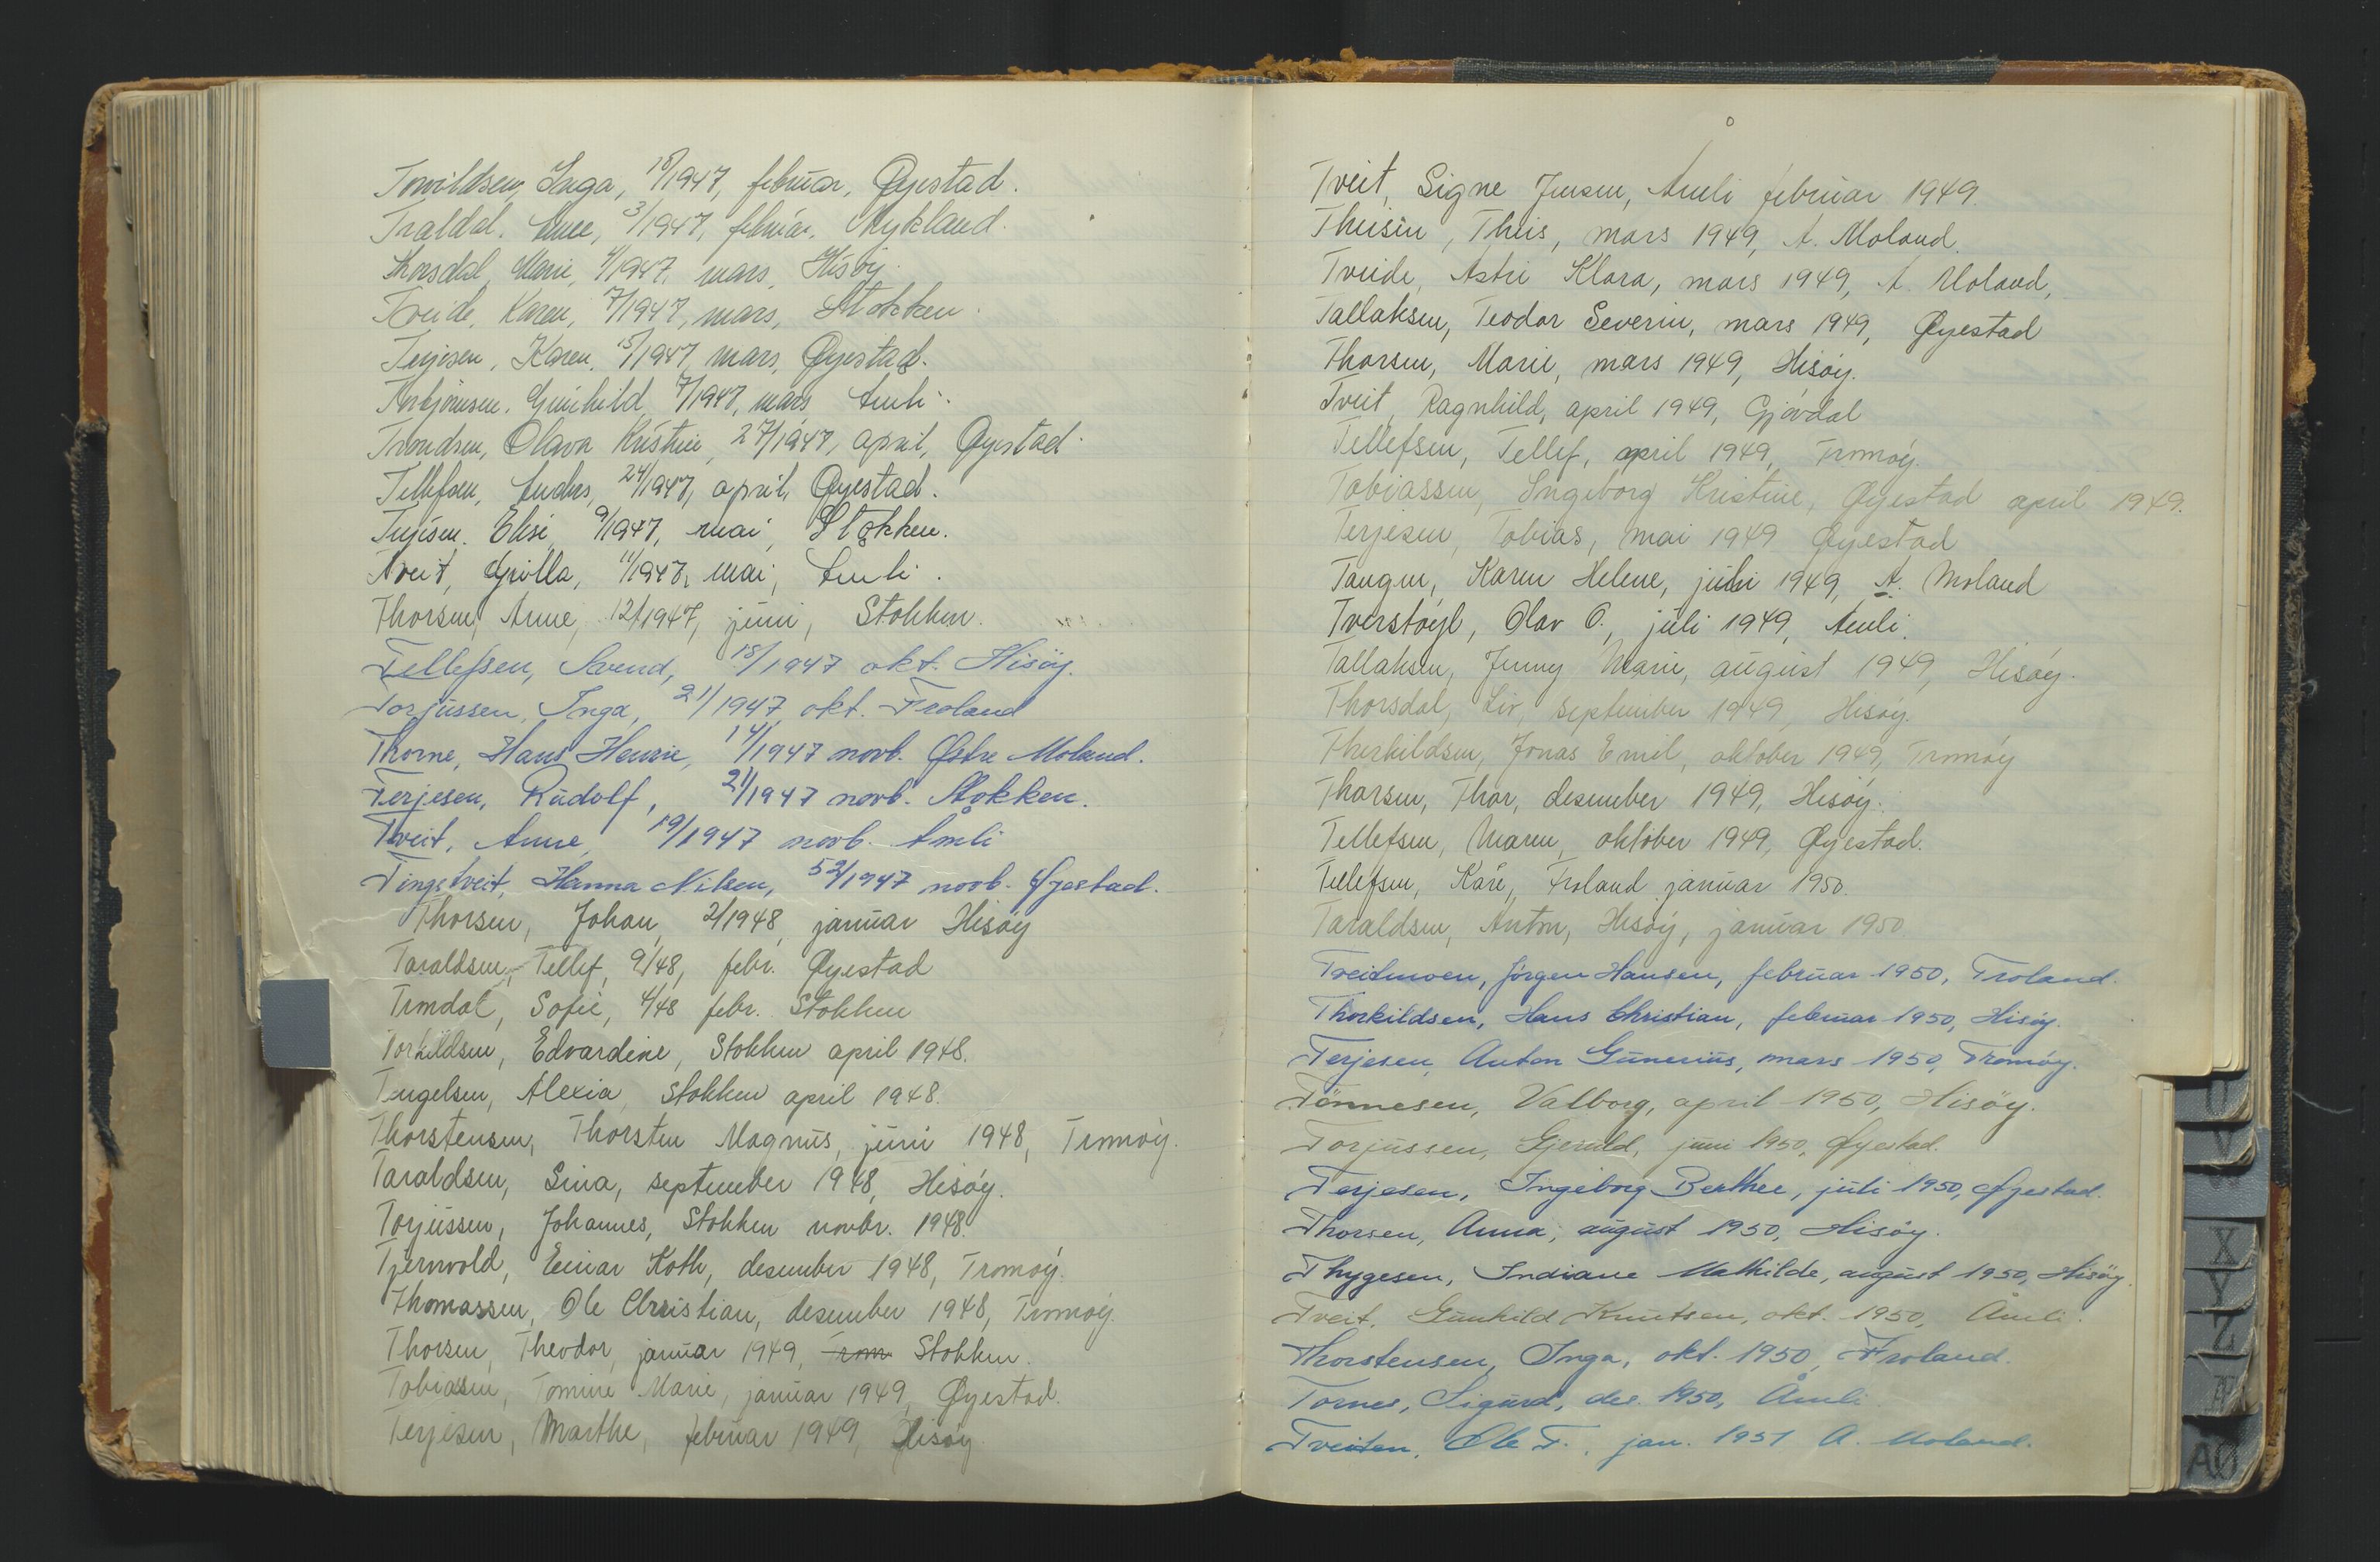 Torvildsen, Inga, 18/1947, februar, Øyestad.
Traldal. Anne, 3/1947, februar, Mykland.
Thorsdal, Marie, 4/1947, mars, Hisøy.
Tveide, Karen, 7/1947, mars, Stokken.
Terjesen, Karen, 15/1947, mars, Øyestad.
Torbjørnsen, Gunhild, 7/1947, mars Åmli.
Trondsen, Olava Kristine, 27/1947, april, Øyestad.
Tellefsen, Anders, 24/1947, april, Øyestad.
Terjesen. Elise, 9/1947, mai, Stokken.
Tveit, Gunilla, 11/1947, mai, Åmli.
Thorsen, Anne, 12/1947, juni, Stokken.
Tellefsen, Svend, 18/1947 okt. Hisøy.
Torjussen, Inga, 21/1947, okt. Froland
Thorne, Hans Henrie, 14/1947 novb. Østre Moland.
Terjesen, Rudolf, 21/1947 novb. Stokken.
Tveit, Anne, 19/1947 novb. Åmli
Tingstveit, Hanna Nilsen, 52/1947 novb. Øyestad.
Thorsen, Johan, 2/1948, januar Hisøy
Taraldsen, Tellef, 9/48, febr. Øyestad
Tromdal, Sofie, 4/48 febr. Stokken
Torkildsen, Edvardine, Stokken april 1948.
Tengelsen, Alexia, Stokken april 1948.
Thorstensen, Thorsten Magnus, juni 1948, Tromøy.
Taraldsen, Sina, september 1948, Hisøy.
Torjussen, Johannes, Stokken novbr. 1948.
Tjernvold, Einar Koth, desember 1948, Tromøy.
Thomassen, Ole Christian, desember 1948, Tromøy.
Thorsen, Theodor, januar 1949, Trom Stokken.
Tobiassen, Tomine Marie, januar 1949, Øyestad.
Terjesen, Marthe, februar 1949, Hisøy
Tveit, Signe Jensen, Åmli februar 1949.
Theisen, Theis, mars 1949, A. Moland.
Tveide, Astri Klara, mars 1949, A. Moland,
Tallaksen, Teodor Severin, mars 1949, Øyestad
Thorsen, Marie, mars 1949, Hisøy.
Tveit, Ragnhild, april 1949, Gjøvdal
Tellefsen, Tellef, april 1949, Tromøy.
Tobiassen, Ingeborg Kristine, Øyestad april 1949.
Terjesen, Tobias, mai 1949 Øyestad
Tangen, Karen Helene, juni 1949, A. Moland
Tverstøyl, Olav O., juli 1949, Åmli.
Tallaksen, Jenny Marie, august 1949, Hisøy.
Thorsdal, Liv, september 1949, Hisøy.
Therkildsen, Jonas Emil, oktober 1949, Tromøy
Thorsen, Thor, desember 1949, Hisøy.
Tellefsen, Maren, oktober 1949, Øyestad.
Tellefsen, Kåre, Froland januar 1950.
Taraldsen, Anton, Hisøy, januar 1950
Tveitmoen, Jørgen Hansen, februar 1950, Froland.
Thorkildsen, Hans Christian, februar 1950, Hisøy.
Terjesen, Anton Gunerius, mars 1950, Tromøy.
Tönnesen, Valborg, april 1950, Hisøy.
Torjussen, Gjeruld, juni 1950, Øyestad.
Terjesen, Ingeborg Berthee, juli 1950, Øyestad.
Thorsen, Anna, august 1950, Hisøy.
Thygesen, Indiane Mathilde, august 1950, Hisøy.
Tveit, Gunhild Knutsen, okt. 1950, Åmli.
Thorstensen, Inga, okt. 1950, Froland.
Tornes, Sigurd, des. 1950, Åmli
Tveiten, Ole T., jan. 1951 A. Moland.
U
V
X
Y
Z
Æ
AØ